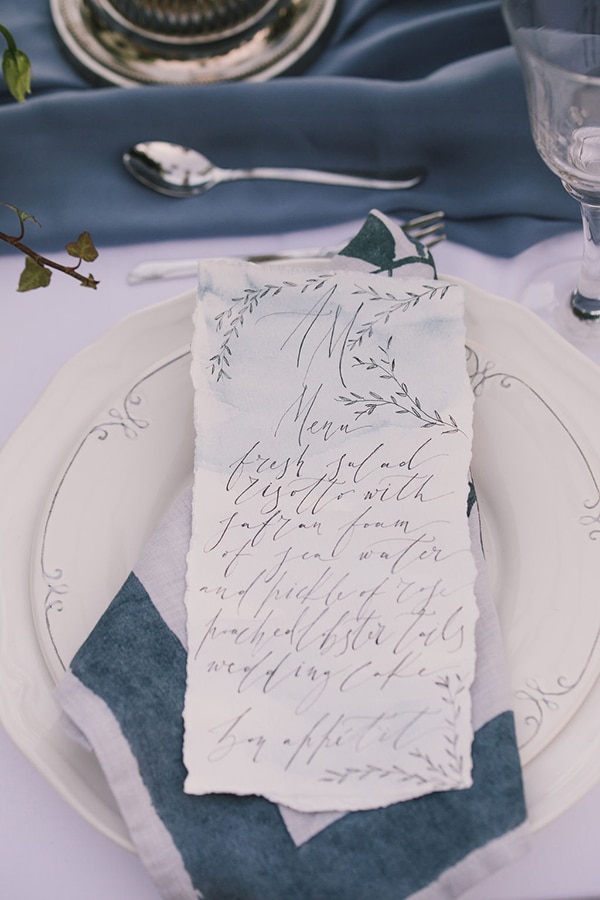 AM
Menu
fresh salad
risotto with
safran foam
of sea water
and pickle of rose
poached lobster tails
wedding cake
bon appétit